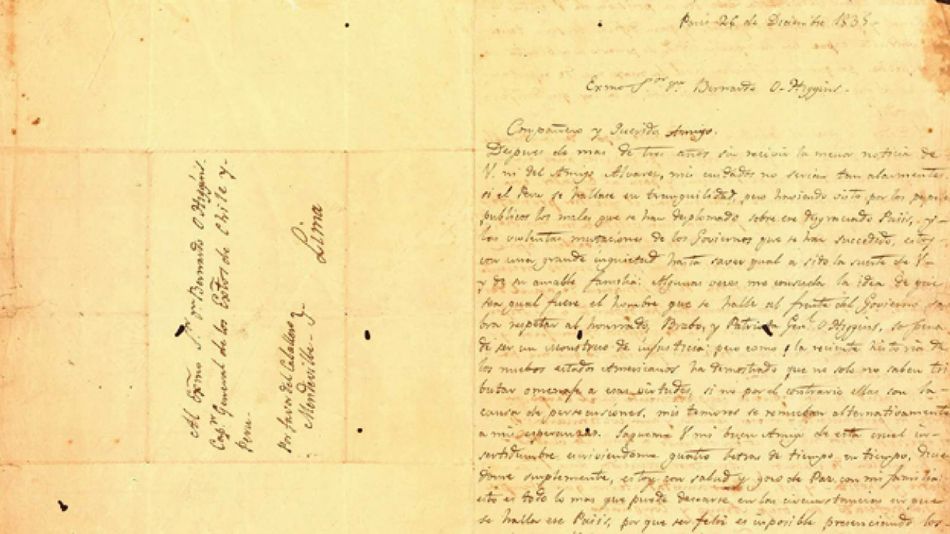 Al Exmo Sr. Dn Bernardo O Higgins.
Capn General de los Extos de Chile y
Peru-
Por favor del Caballero
Mendeville-
Lima
Paris 26 de Diciembre 1835
Exmo Sor Dn Bernardo O-Higgins.
Compañero y Querido Amigo.
Despues de mas de tres años sin recivir la menor noticia de
V. ni del Amigo Alvarez, mis cuidados no serian tan alarmantes
si el Peru se hallase en tranquilidad, pero haviendo visto por los papeles
publicos los males que se han desplomado sobre ese desgraciado Paiis, y
las violentas mutaciones de los Goviernos que se han succedido, estoy
con una grande inquietud hasta saver qual a sido la suerte de V-
y de su amable familia: Algunas veces me consuela la idea de que
sea qual fuere el hombre que se halle al frente del Govierno sa
bra respetar al honrrado, Brabo, y Patriota Genl O Higgins, so pena
de ser un monstruo de injusticia: pero como la reciente historia de
los nuebos estados Americanos ha demostrado que no solo no saben tri
butar omenaje a esas virtudes, si no por el contrario ellas son la
causa de persecuciones, mis temores se renueban alternativamente
a mis esperanzas. Saqueme V mi buen Amigo de esta cruel in-
sertidumbre enviviendome quatro letras de tiempo en tiempo, dicien
dome simplemente, estoy con salud y goso de Paz con mi familia:
esto es todo lo mas que puede desearse en las circunstancias en que
se halla ese Paiis, por que ser feliz es imposible presenciando los